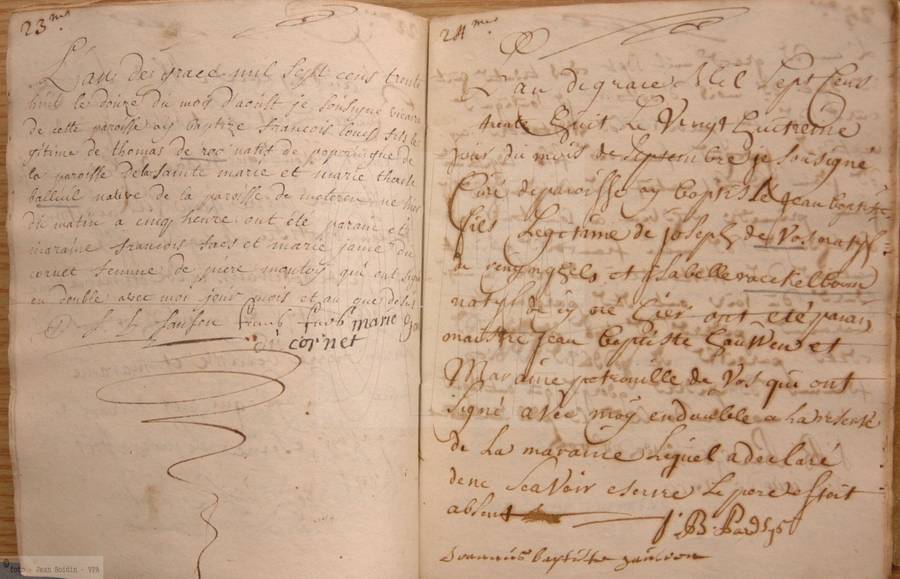 23me
L'an de grace mil sept cens trente
huit le douze du mois d'aoust je sousigné vicaire
de cette paroisse ay baptizé francois louis fils le
gitime de thomas de roo natif de poperingue de
la paroisse de la sainte marie et marie therese
balleul native de la paroisse de meteren ne hier
du matin a cinq heure ont été parain et
maraine francois faes et marie jaine du
cornet femme de piere montoy qui ont signe
en double avec moy jour mois et an que desus
marie
cornet
24me
L'an de grace Mil sept Cens
trente Huit Le Vingt Huitieme
jour du mois de septembre je sousigné
Curé de paroisse ay baptisé jean baptiste
fils Legitime de joseph de Vos natyf
de renynghels et isabelle raeckelboom
natyf de ont été parain
maistre jean baptiste Cauwen et
Maraine petronille de Vos qui ont
signé avec moy en double a la reserve
de La maraine Lequel a declaré
de ne scavoir escrire Le pere estoit
absent
J. B.
Joannes baptiste
foto - Jean Boidin - VVR